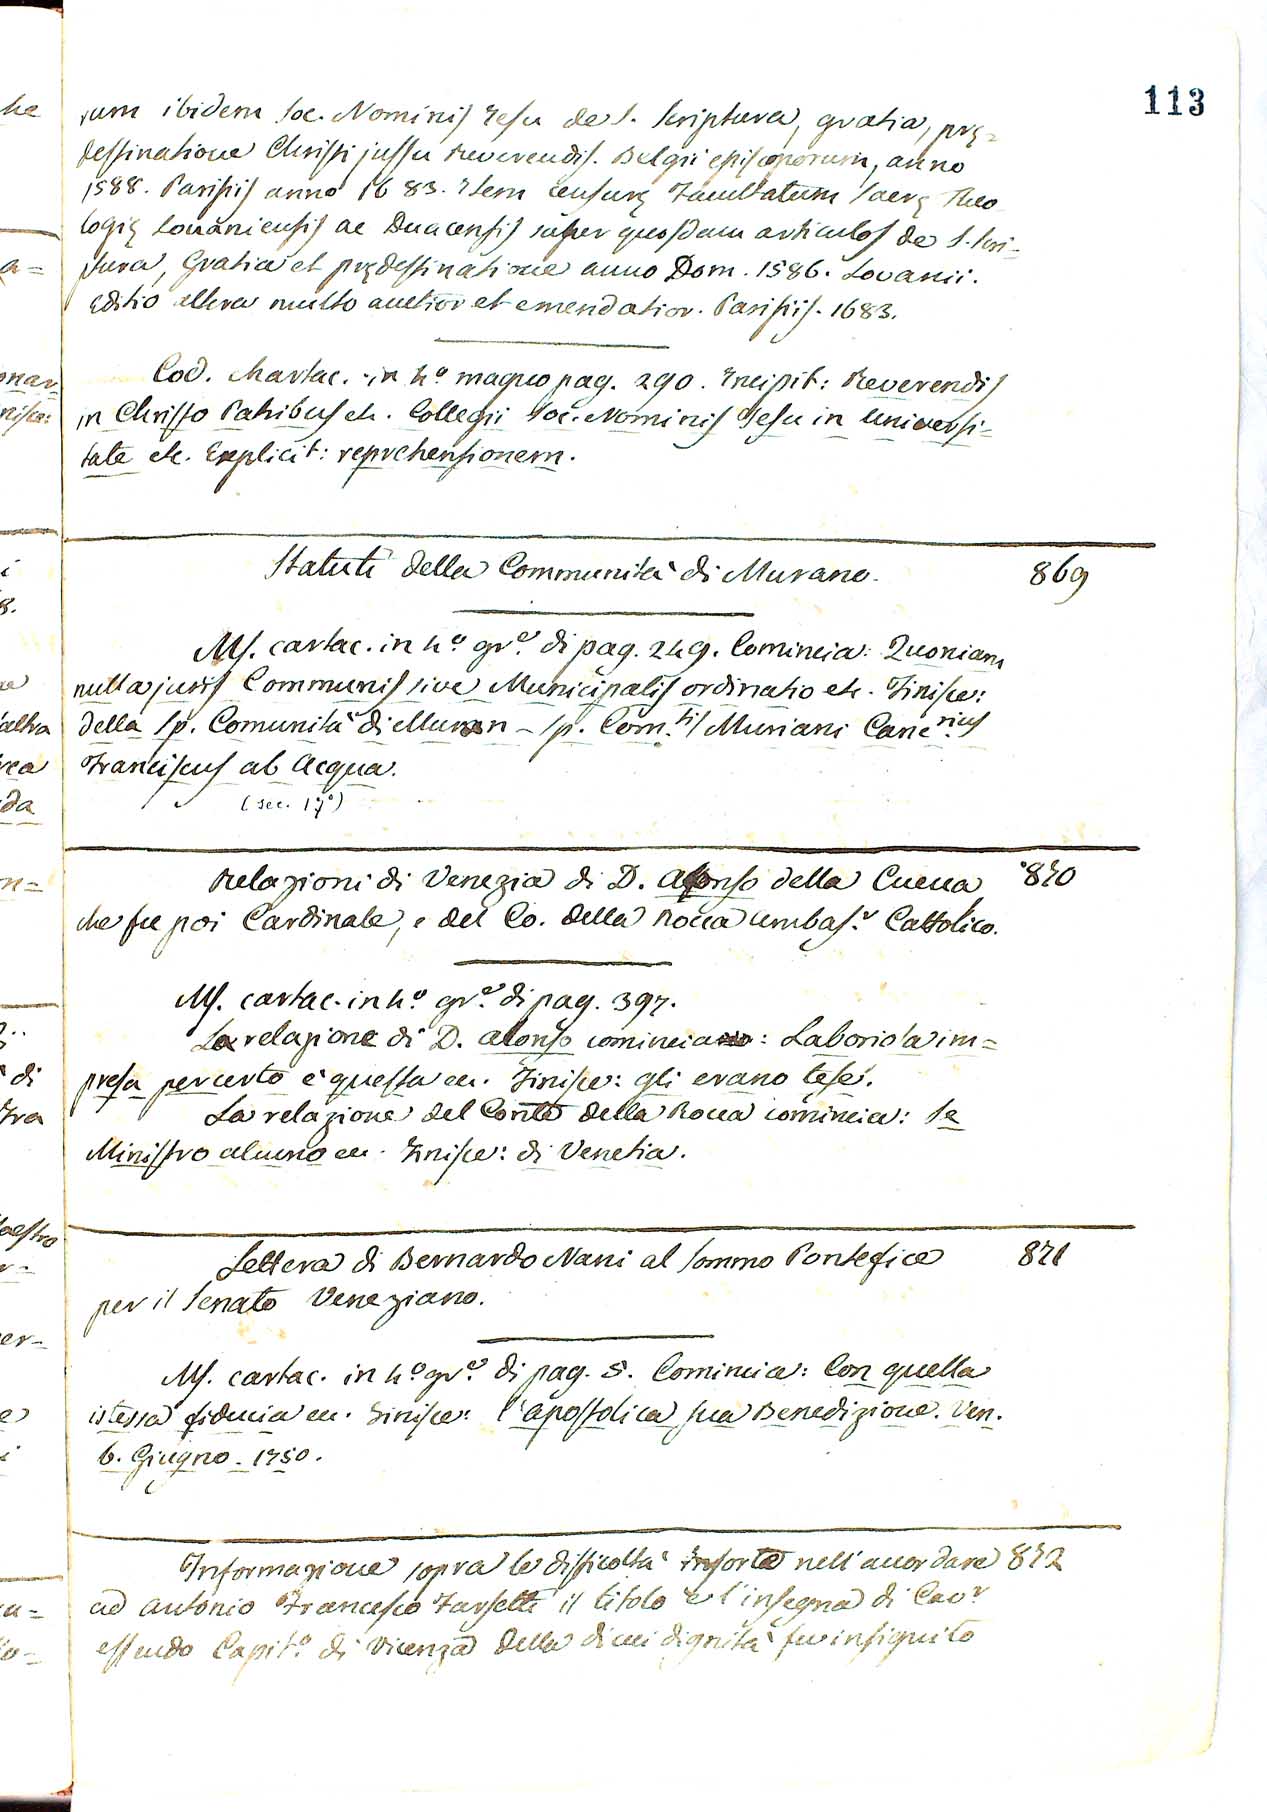 113
rum ibidem Soc. Nominis Jesu de S. Scriptura, gratia, prę=
destinatione Christi jussu Reverendis. Belgii episcoporum, anno
1588. Parisiis anno 1683. Item censurę Facultatum Sacrę Theo
logię Lovaniensis ac Duacensis super quosdam articulos de S. Scri=
ptura, Gratia et prędestinatione anno Dom. 1586. Lovanii.
Editio altera multo auctior et emendatior. Parisiis. 1683.
Cod. chartac. in 4º magno pag. 290. Incipit: Reverendis
in Christo Patribus etc. Collegii Soc. Nominis Jesu in Universi=
tate etc. Explicit: reprehensionem.
Statuti della Communità di Murano. 869
Ms. cartac. in 4º grᵉ di pag. 249. Comincia: Quoniam
nulla juris Communis sive Municipalis ordinatio etc. Finisce:
della Sp. Comunità di Muran – Sp. Com.tis Muriani Canc.rius
Franciscus ab Acqua.
(sec. 17º)
Relazioni di Venezia di D. Alonso della Cueva 870
che fu poi Cardinale, e del Co. della Rocca Ambas.r Cattolico.
Ms. cartac. in 4º gr.e di pag. 397.
La relazione di D. Alonso comincia: Laboriosa im=
presa per certo è questa ec. Finisce: gli erano tese.
La relazione del Conte della Rocca comincia: Se
Ministro alcuno ec. Finisce: di Venetia.
Lettera di Bernardo Nani al Sommo Pontefice 871
per il Senato Veneziano.
Ms. cartac. in 4º gr.e di pag. 5. Comincia: Con quella
istessa fiducia ec. Finisce: l'apostolica sua Benedizione. Ven.
6. Giugno. 1750.
Informazione sopra le difficoltà insorte nell'accordare 872
ad Antonio Francesco Farsetti il titolo e l'insegna di Cav.r
essendo Capit.o di Vicenza della di cui dignità fu insignito